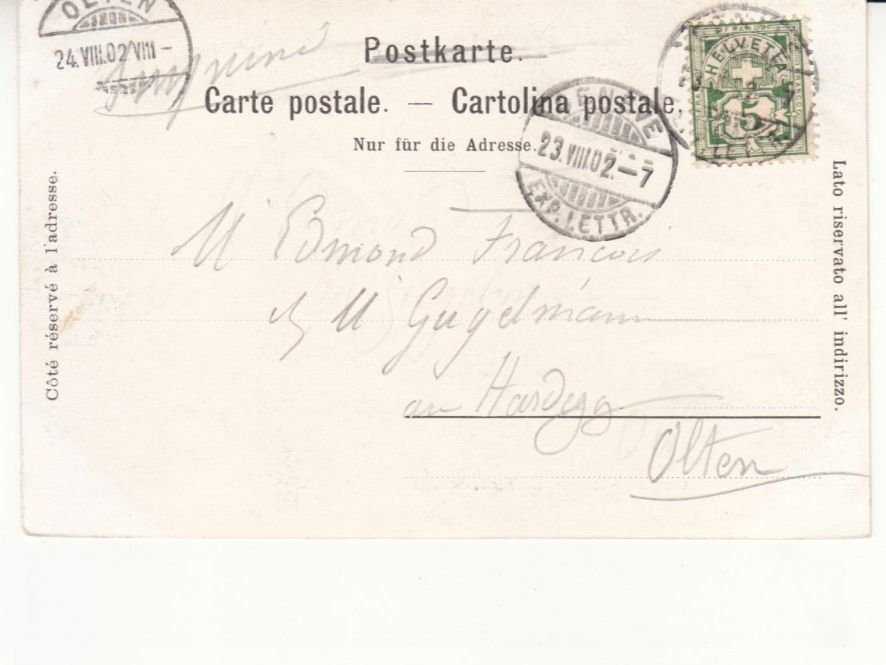 OLTEN
24.VIII.02 VIII –
Postkarte.
Carte postale. — Cartolina postale.
Nur für die Adresse.
GENÈVE
23.VIII.02.–7
EXP. LETTR.
HELVETIA
5
Côté réservé à l'adresse.
Lato riservato all' indirizzo.
Mr Edmond Francois
M Gugelmann
Hardegg
Olten